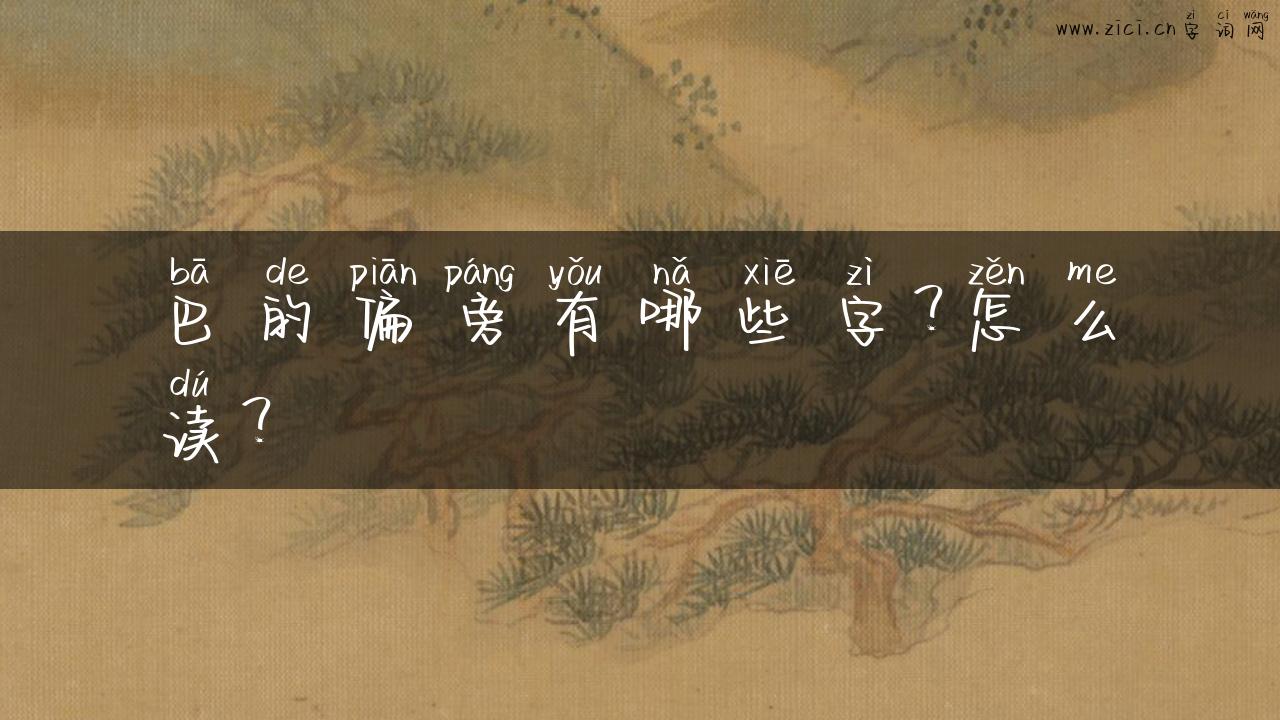 zì cí wǎng
www.zici.cn 字词网
bā de piān páng yǒu nǎ xiē zì zěn me
巴的偏旁有哪些字？怎么
dú
读？